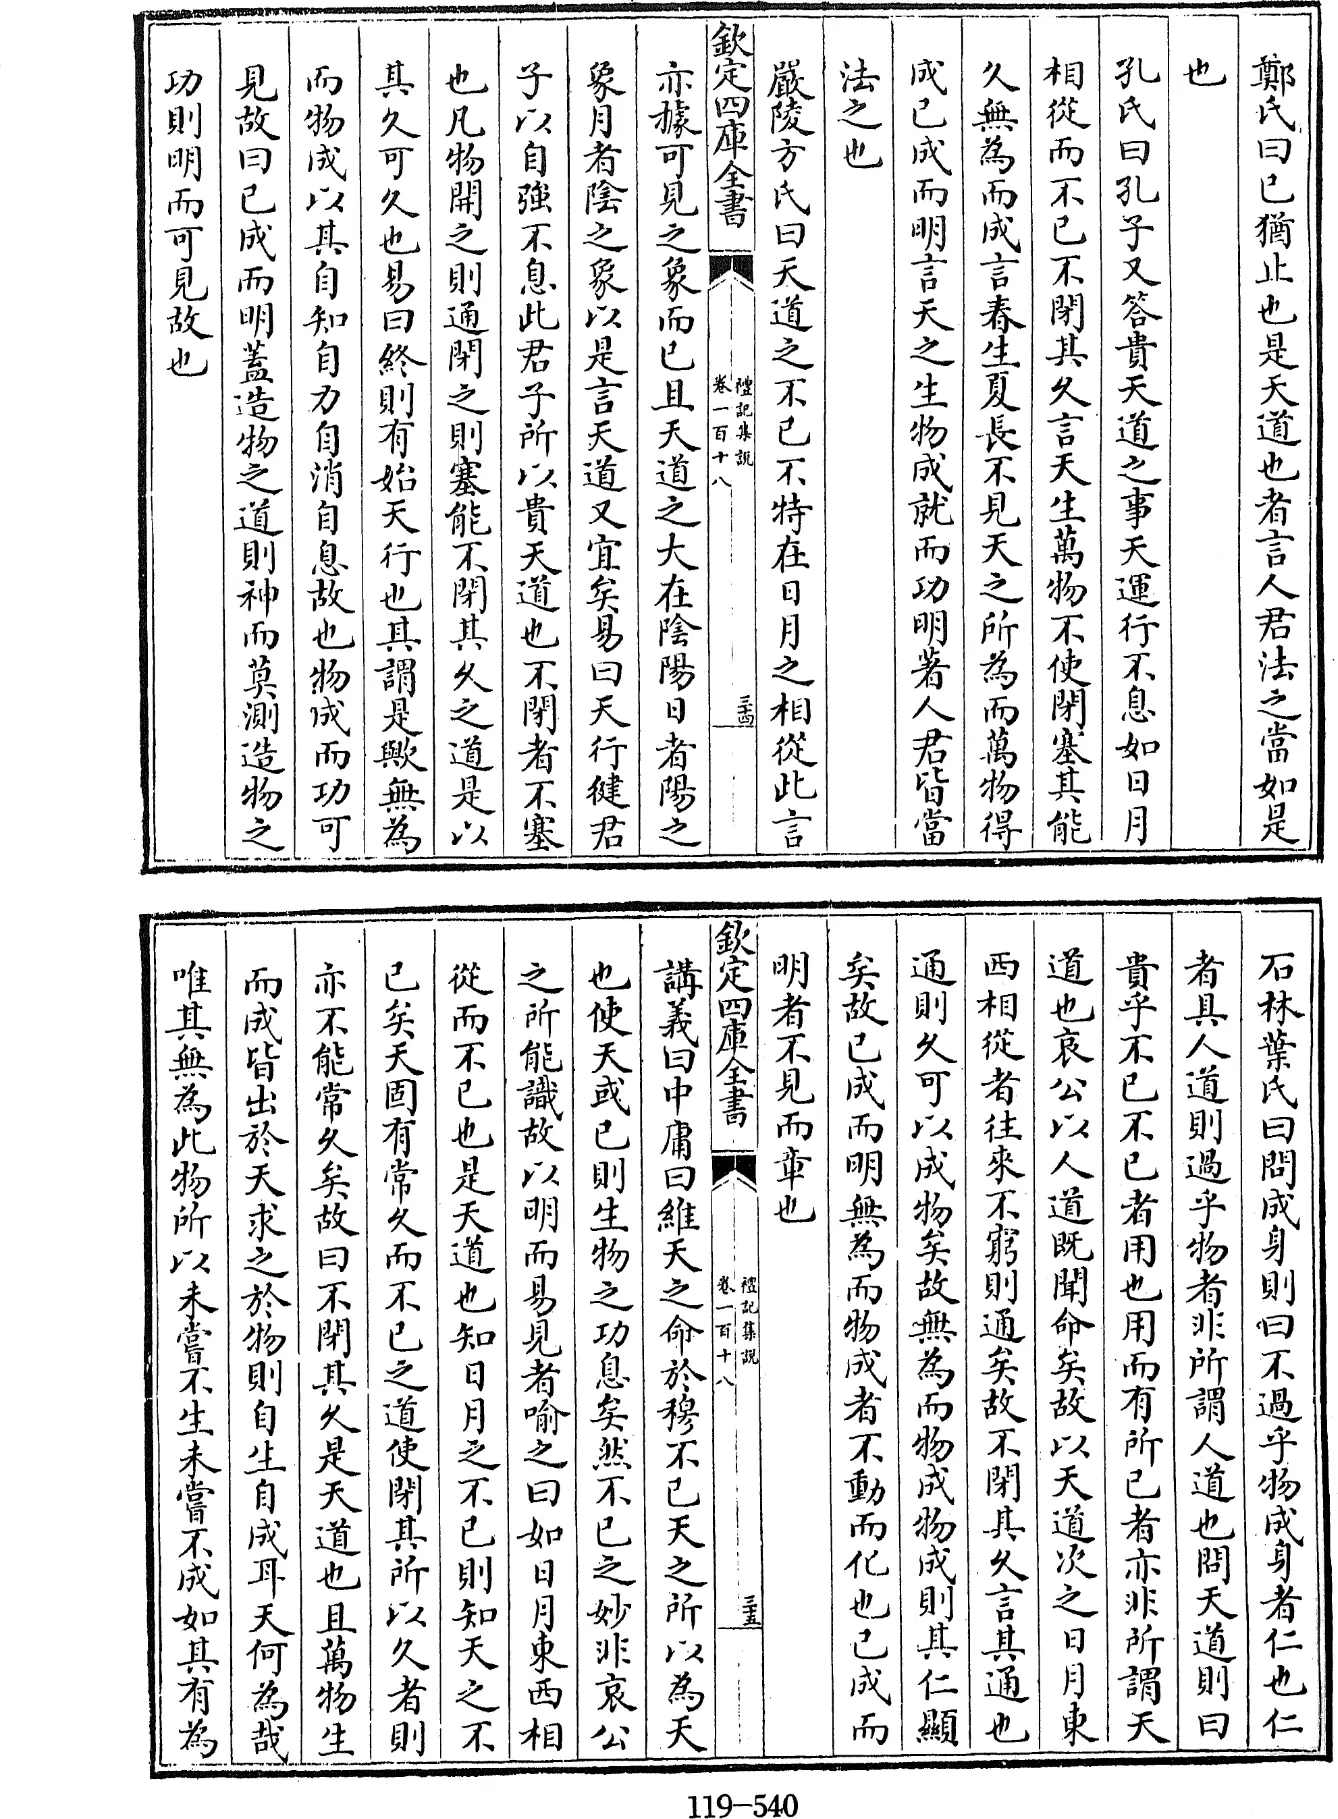 鄭氏曰已猶止也是天道也者言人君法之當如是
也
孔氏曰孔子又答貴天道之事天運行不息如日月
相從而不已不閉其久言天生萬物不使閉塞其能
久無為而成言春生夏長不見天之所為而萬物得
成已成而明言天之生物成就而功明著人君皆當
法之也
嚴陵方氏曰天道之不已不特在日月之相從此言
欽定四庫全書
禮記集說
卷一百十八
三十四
亦據可見之象而已且天道之大在陰陽日者陽之
象月者陰之象以是言天道又宜矣易曰天行健君
子以自強不息此君子所以貴天道也不閉者不塞
也凡物開之則通閉之則塞能不閉其久之道是以
其久可久也易曰終則有始天行也其謂是歟無為
而物成以其自知自力自消自息故也物成而功可
見故曰已成而明蓋造物之道則神而莫測造物之
功則明而可見故也
石林葉氏曰問成身則曰不過乎物成身者仁也仁
者具人道則過乎物者非所謂人道也問天道則曰
貴乎不已不已者用也用而有所已者亦非所謂天
道也哀公以人道既聞命矣故以天道次之日月東
西相從者往來不窮則通矣故不閉其久言其通也
通則久可以成物矣故無為而物成物成則其仁顯
矣故已成而明無為而物成者不動而化也已成而
明者不見而章也
欽定四庫全書
禮記集說
卷一百十八
三十五
講義曰中庸曰維天之命於穆不已天之所以為天
也使天或已則生物之功息矣然不已之妙非哀公
之所能識故以明而易見者喻之曰如日月東西相
從而不已也是天道也知日月之不已則知天之不
已矣天固有常久而不已之道使閉其所以久者則
亦不能常久矣故曰不閉其久是天道也且萬物生
而成皆出於天求之於物則自生自成耳天何為哉
唯其無為此物所以未嘗不生未嘗不成如其有為
119-540